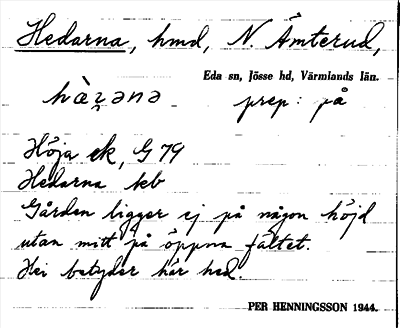 Hedarna, hmd, N. Ämterud,
Eda sn, Jösse hd, Värmlands län.
hàẓənə prep: på
Höja ek, G 79
Hedarna kb
Gården ligger ej på någon höjd
utan mitt på öppna fältet.
Hei betyder här hed.
PER HENNINGSSON 1944.